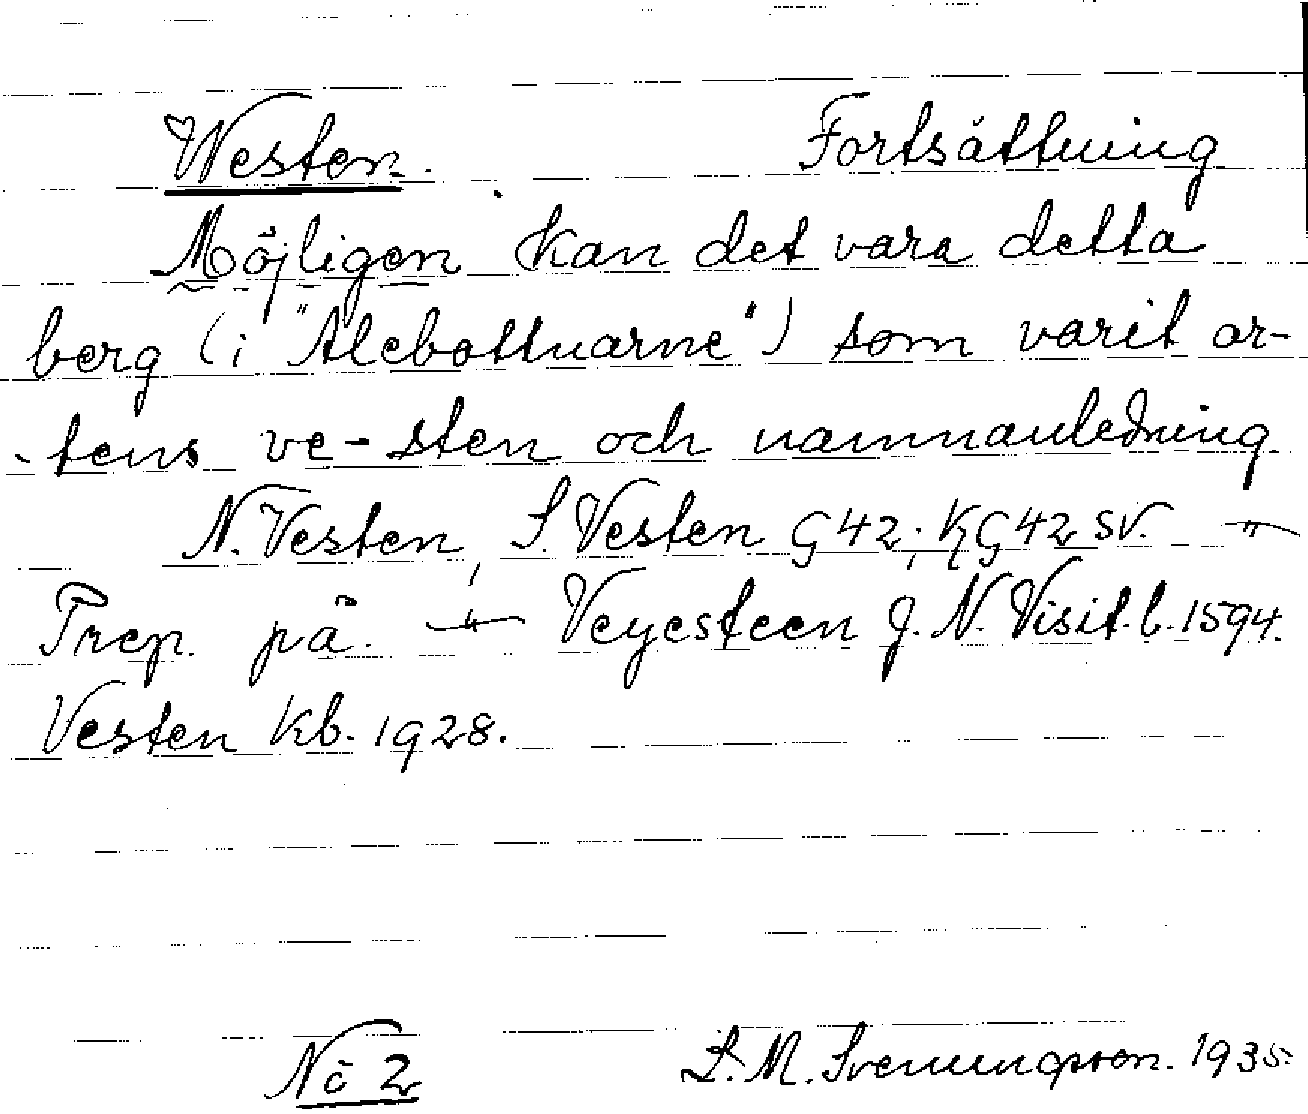 Westen. Fortsättning
Möjligen kan det vara detta
berg (i "Alebottnarne") som varit or-
-tens ve-sten och namnanledning
N. Vesten, S. Vesten G42; KG42 SV. —"—
Prep. på. —"— Veyesteen J. N. Visit. b. 1594.
Vesten Kb. 1928.
No 2 L. M. Svenungsson. 1935.